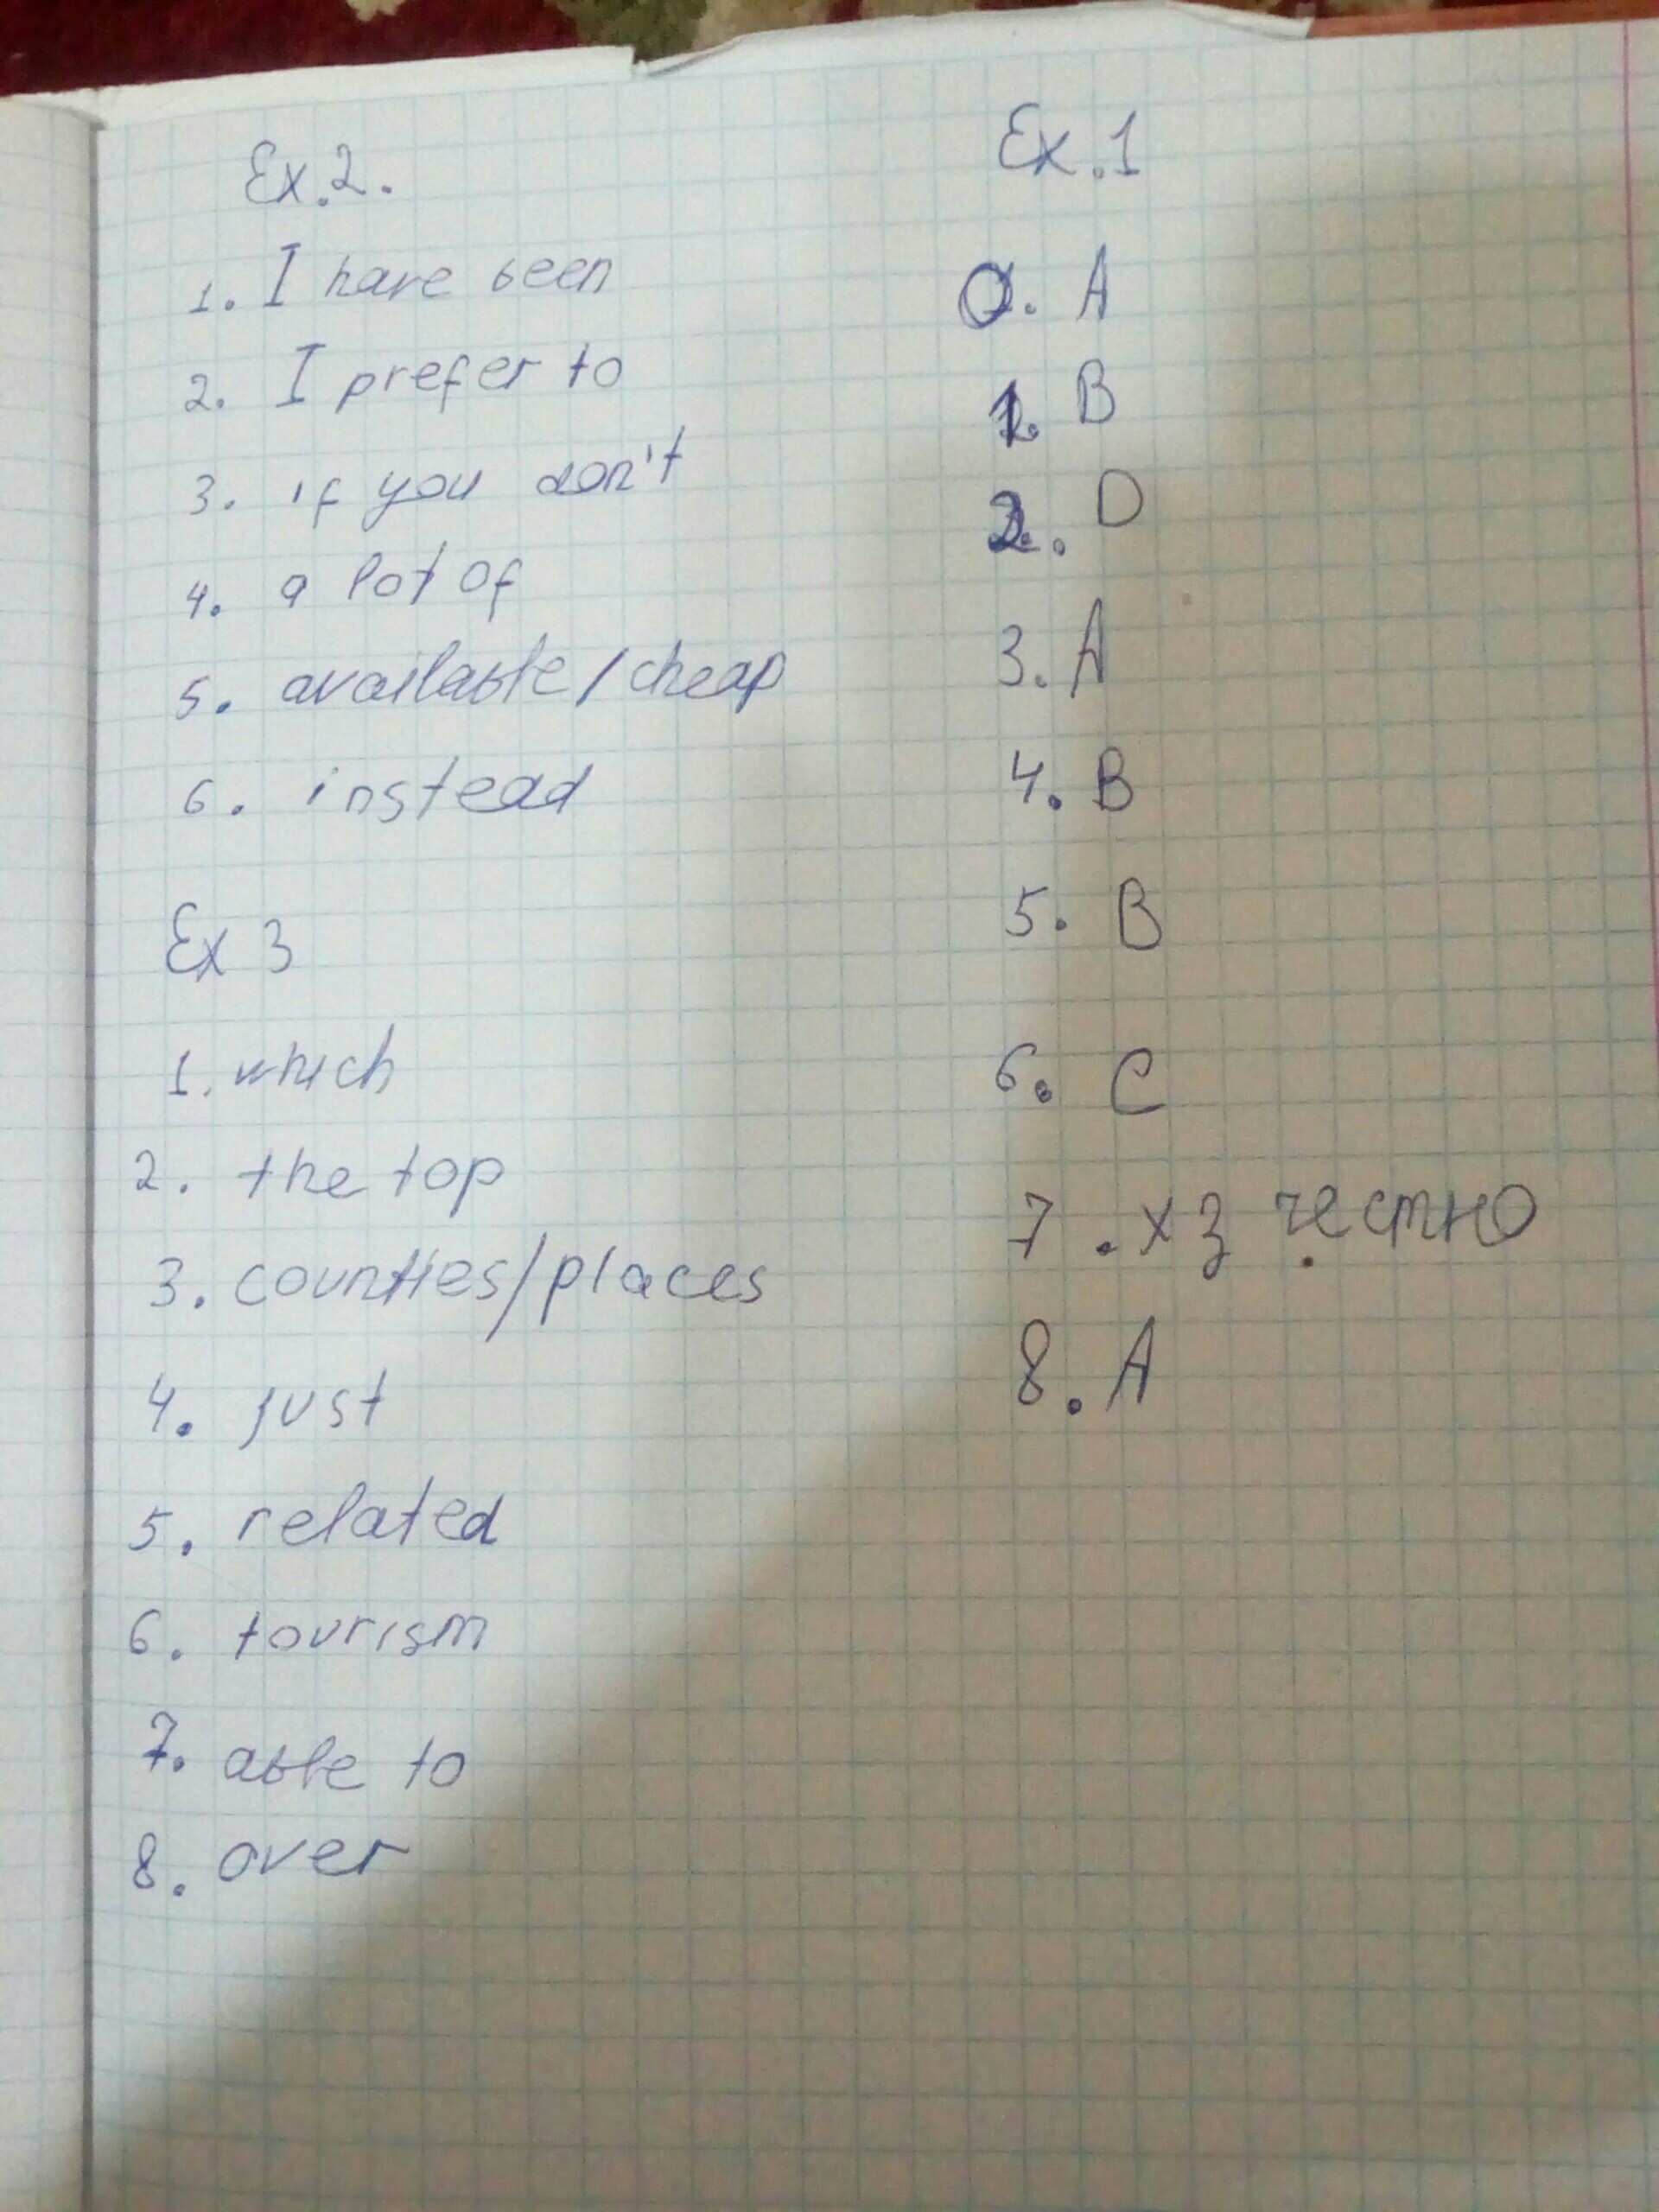 Ex.2.
1. I have been
2. I prefer to
3. if you don't
4. a lot of
5. available/cheap
6. instead
Ex 3
1. which
2. the top
3. counties/places
4. just
5. related
6. tourism
7. able to
8. over
Ex.1
0. A
1. B
2. D
3. A
4. B
5. B
6. C
7. хз честно
8. A